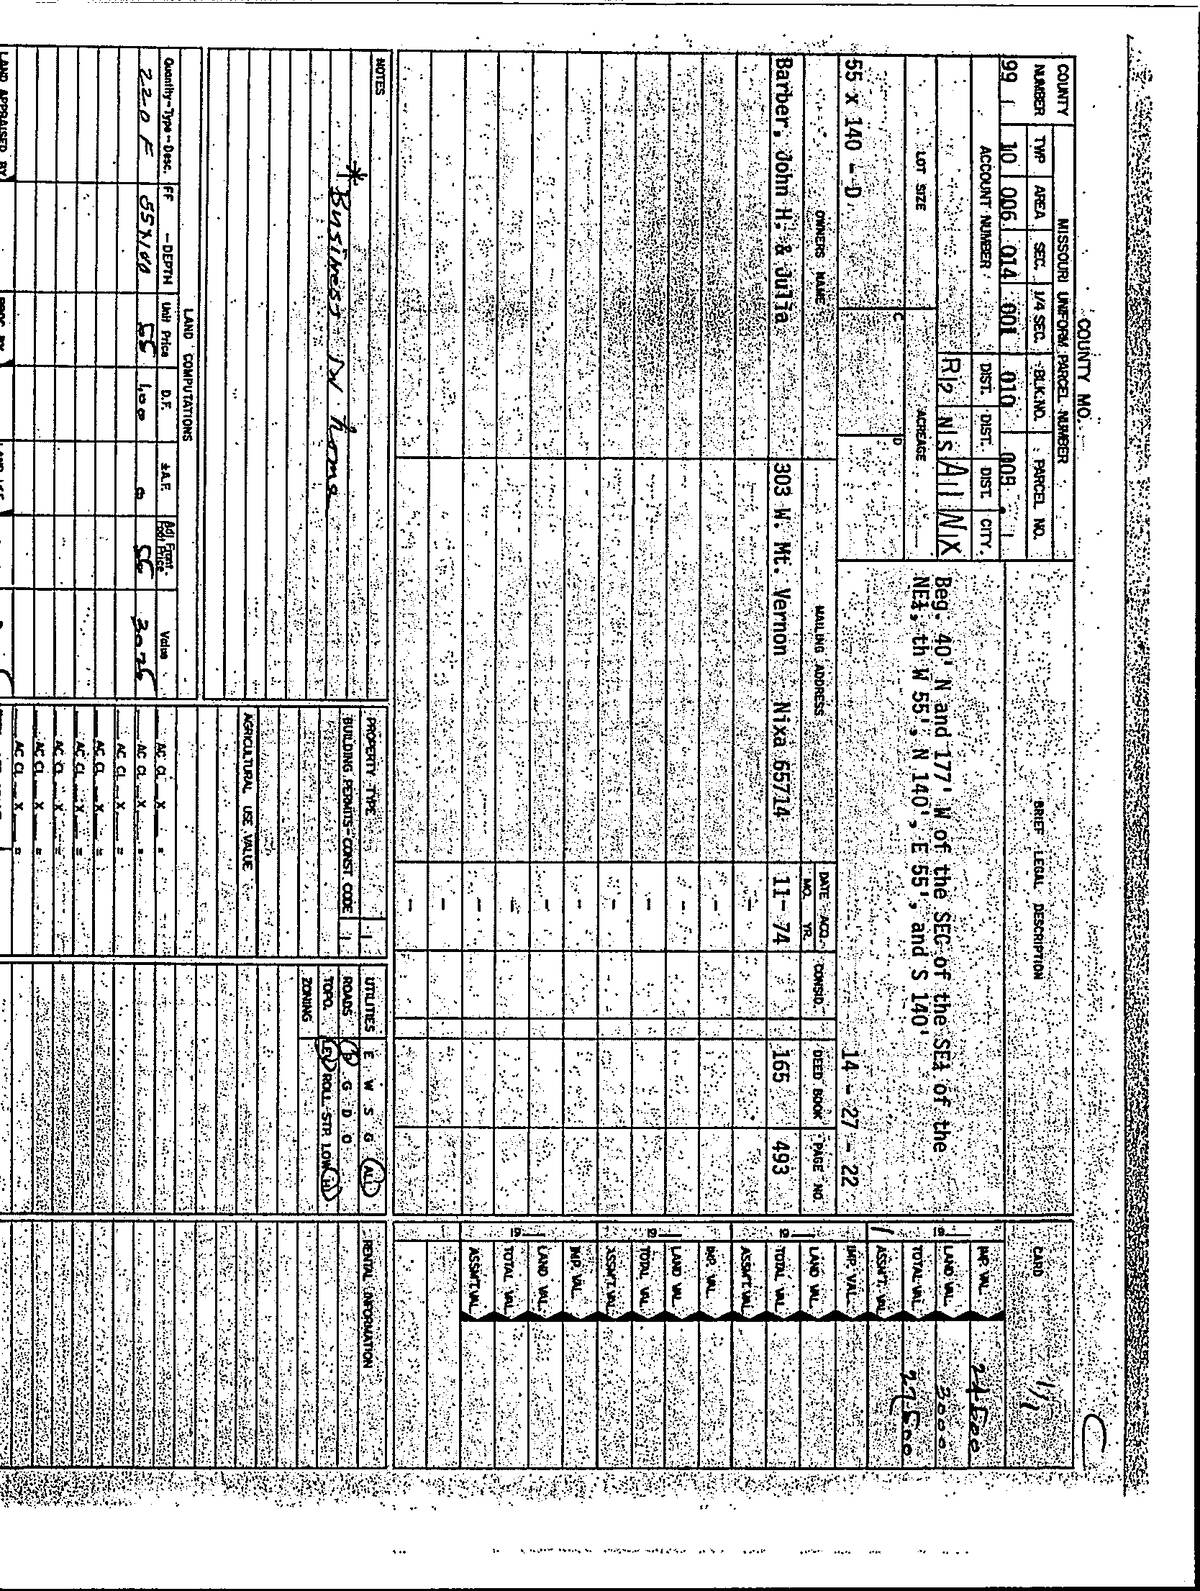 COUNTY MO.
MISSOURI UNIFORM PARCEL NUMBER
COUNTY NUMBER TWP AREA SEC. 1/4 SEC. BLK. NO. PARCEL NO.
99 10 006 014 001 010 005
ACCOUNT NUMBER DIST. DIST. DIST. CITY
R12 NS A1 NX
LOT SIZE ACREAGE
C D
55 x 140 - D
BRIEF LEGAL DESCRIPTION
Beg. 40' N and 177' W of the SEC of the SE¼ of the
NE¼, th W 55', N 140', E 55', and S 140'
14 - 27 - 22
CARD 1/1
OWNERS NAME MAILING ADDRESS DATE ACQ. MO. YR. CONSID. DEED BOOK PAGE NO.
Barber, John H. & Julia 303 W. Mt. Vernon Nixa 65714 11- 74 165 493
19
IMP. VAL. 24500
LAND VAL. 3000
TOTAL VAL. 27500
ASSM'T. VAL.
19
IMP. VAL.
LAND VAL.
TOTAL VAL.
ASSM'T. VAL.
19
IMP. VAL.
LAND VAL.
TOTAL VAL.
ASSM'T. VAL.
19
IMP. VAL.
LAND VAL.
TOTAL VAL.
ASSM'T. VAL.
NOTES
* Business IN home
PROPERTY TYPE
BUILDING PERMITS-CONST CODE
AGRICULTURAL USE VALUE
AC CL X =
AC CL X =
AC CL X =
AC CL X =
AC CL X =
AC CL X =
AC CL X =
AC CL X =
UTILITIES E W S G ALL
ROADS P G D O
TOPO. LEV ROLL STR LOW
ZONING
RENTAL INFORMATION
LAND COMPUTATIONS
Quantity-Type-Desc. FF - DEPTH Unit Price D.F. ±A.F. Adj. Front. Foot Price Value
220 F 55x140 55 1.00 0 55 3025
LAND APPRAISED BY